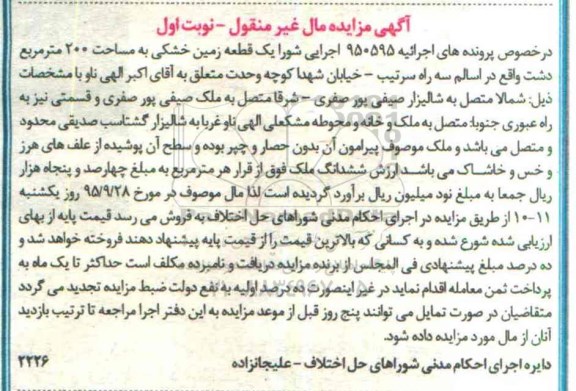 آگهی مزایده مال غیر منقول - نوبت اول
درخصوص پرونده های اجرائیه ۹۵۰۵۹۵ اجرایی شورا یک قطعه زمین خشکی به مساحت ۲۰۰ مترمربع
دشت واقع در اسالم سه راه سرتیپ - خیابان شهدا کوچه وحدت متعلق به آقای اکبر الهی ناو با مشخصات
ذیل: شمالا متصل به شالیزار صیفی پور صفری - شرقا متصل به ملک صیفی پور صفری و قسمتی نیز به
راه عبوری جنوبا: متصل به ملک خانه و محوطه مشکعلی الهی ناو غربا به شالیزار گشتاسب صدیقی محدود
و متصل می باشد و ملک موصوف پیرامون آن بدون حصار و چپر بوده و سطح آن پوشیده از علف های هرز
و خس و خاشاک می باشد ارزش ششدانگ ملک فوق از قرار هر مترمربع به مبلغ چهارصد و پنجاه هزار
ریال جمعا به مبلغ نود میلیون ریال برآورد گردیده است لذا مال موصوف در مورخ ۹۵/۹/۲۸ روز یکشنبه
۱۱-۱۰ از طریق مزایده در اجرای احکام مدنی شوراهای حل اختلاف به فروش می رسد قیمت پایه از بهای
ارزیابی شده شورع شده و به کسانی که بالاترین قیمت را از قیمت پایه پیشنهاد دهند فروخته خواهد شد و
ده درصد مبلغ پیشنهادی فی المجلس از برنده مزایده دریافت و نامبرده مکلف است حداکثر تا یک ماه به
پرداخت ثمن معامله اقدام نماید در غیر اینصورت ده درصد اولیه به نفع دولت ضبط مزایده تجدید می گردد
متقاضیان در صورت تمایل می توانند پنج روز قبل از موعد مزایده به این دفتر اجرا مراجعه تا ترتیب بازدید
آنان از مال مورد مزایده داده شود.
دایره اجرای احکام مدنی شوراهای حل اختلاف - علیجانزاده ۲۲۲۶